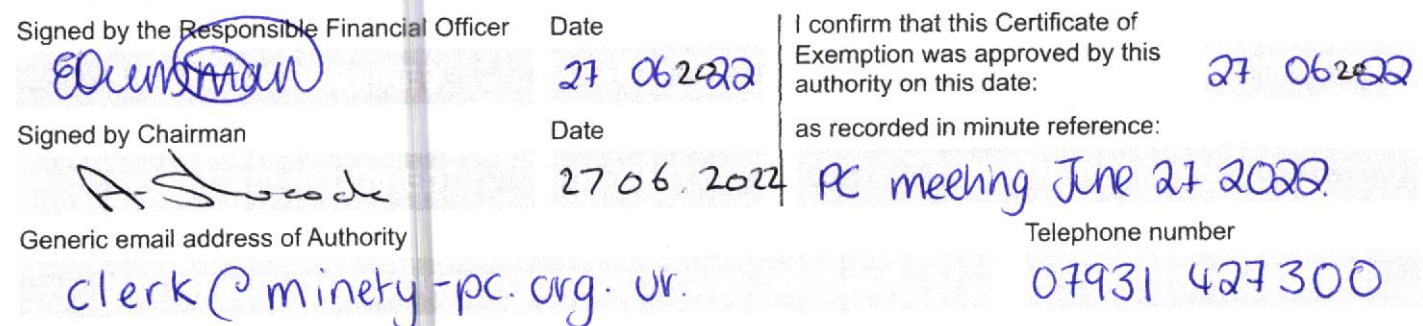 Signed by the Responsible Financial Officer
Date
27 06 2022
I confirm that this Certificate of
Exemption was approved by this
authority on this date:
27 06 2022
Signed by Chairman
Date
27 06 . 2022
as recorded in minute reference:
PC meeting June 27 2022.
Generic email address of Authority
clerk@minety-pc.org.uk.
Telephone number
07931 427300